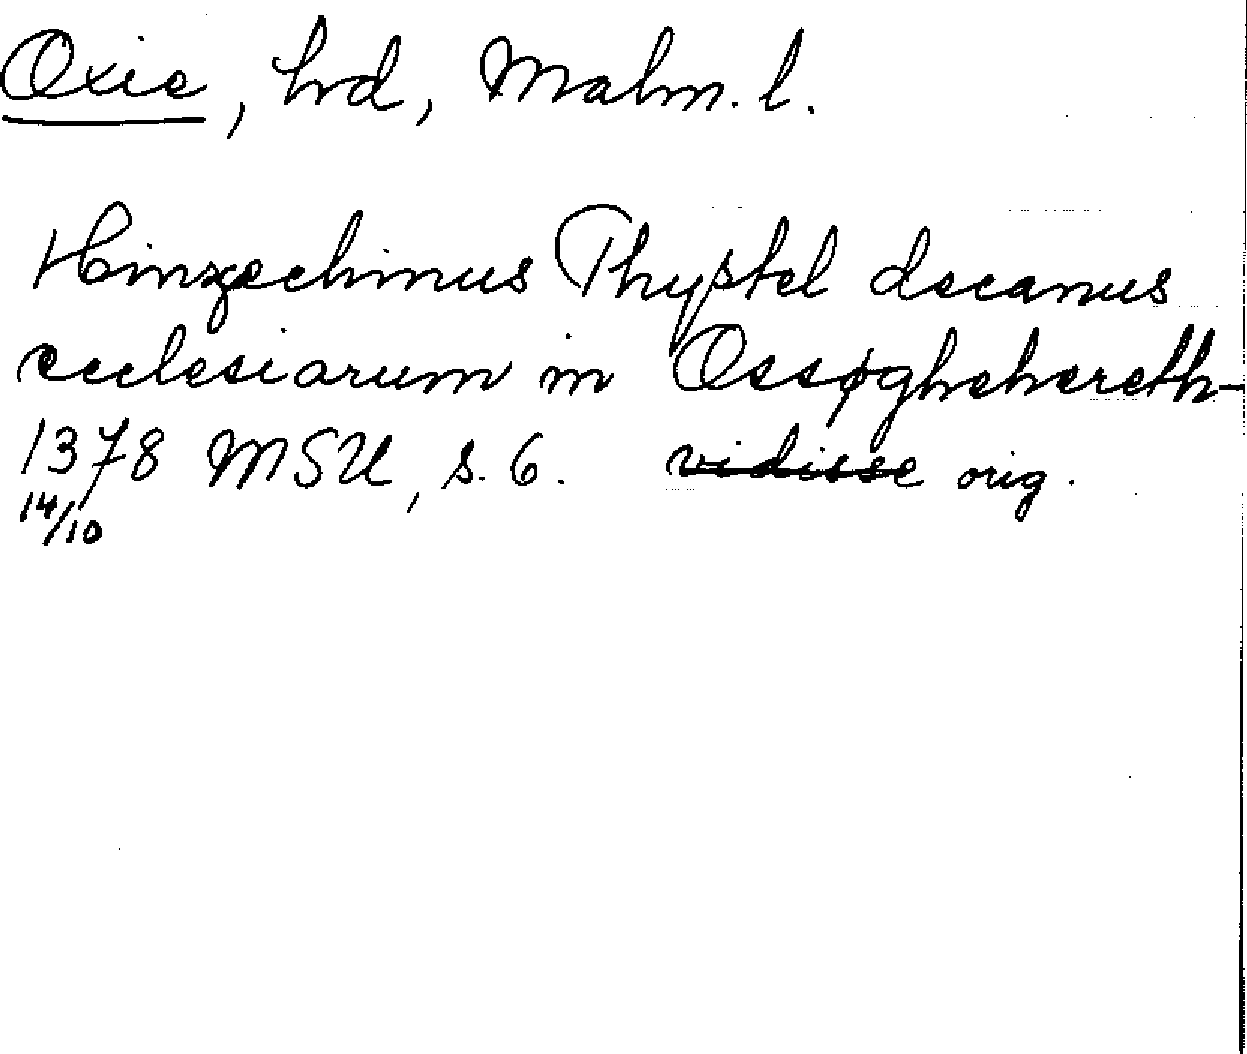 Oxie, hrd, Malm. l.
Hinzechinus Thystel decanus
ecclesiarum in Ossøghehereth-
1378 MSU, s. 6. vidisse orig.
14/10